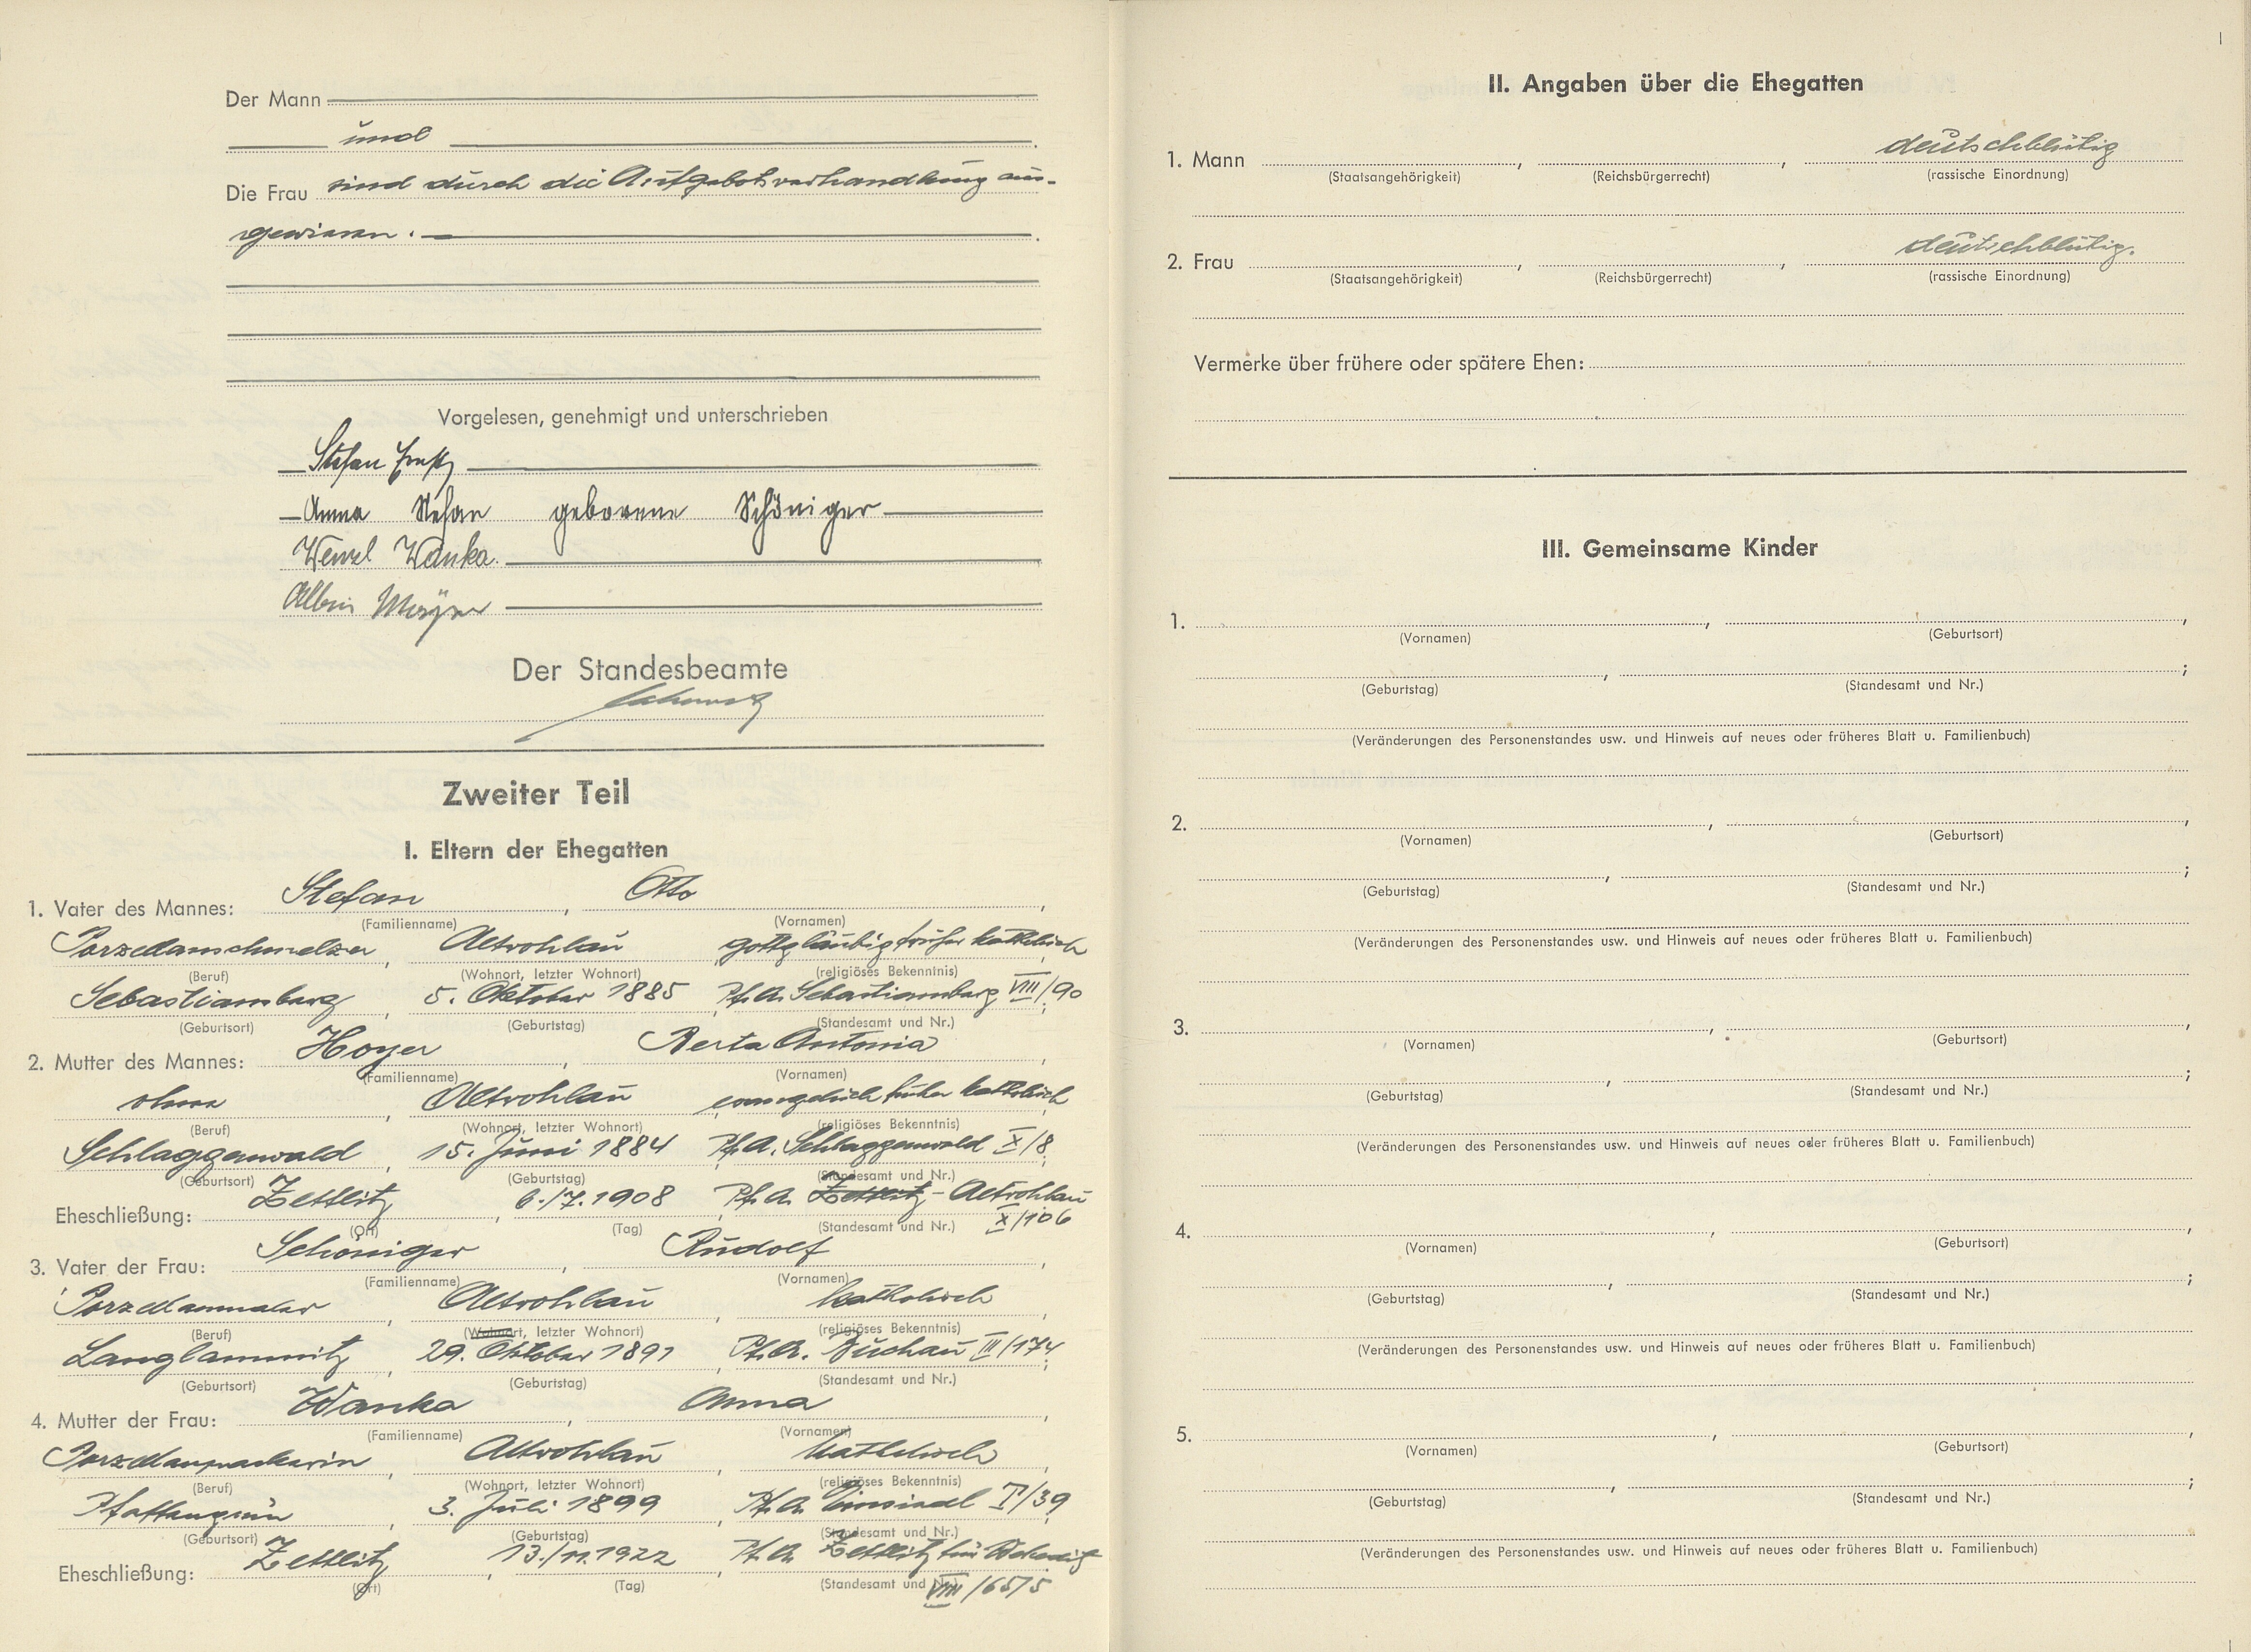 Der Mann
und
Die Frau sind durch die Aufgebotsverhandlung aus-
gewiesen.
Vorgelesen, genehmigt und unterschrieben
Stefan Ernst
Anna Stefan geborene Schöniger
Wenzel Wanka.
Albin
Der Standesbeamte
Zweiter Teil
I. Eltern der Ehegatten
1. Vater des Mannes: Stefan, Otto,
(Familienname) (Vornamen)
Porzellanschmelzer, Altrohlau gottgläubig früher katholisch
(Beruf) (Wohnort, letzter Wohnort) (religiöses Bekenntnis)
Sebastiansberg, 5. Oktober 1885, Pf. A. Sebastiansberg VIII/90
(Geburtsort) (Geburtstag) (Standesamt und Nr.)
2. Mutter des Mannes: Hoyer, Berta Antonia,
(Familienname) (Vornamen)
ohne, Altrohlau evangelisch früher katholisch
(Beruf) (Wohnort, letzter Wohnort) (religiöses Bekenntnis)
Schlaggenwald, 15. Juni 1884 Pf. A. Schlaggenwald X/8;
(Geburtsort) (Geburtstag) (Standesamt und Nr.)
Eheschließung: Zettlitz, 6./7.1908, Pf. A. Zettlitz - Altrohlau
X/106
(Ort) (Tag) (Standesamt und Nr.)
3. Vater der Frau: Schöniger, Rudolf,
(Familienname) (Vornamen)
Porzellanmaler, Altrohlau, katholisch,
(Beruf) (Wohnort, letzter Wohnort) (religiöses Bekenntnis)
Langlammitz, 29. Oktober 1891, Pf. A. Buchau III/174;
(Geburtsort) (Geburtstag) (Standesamt und Nr.)
4. Mutter der Frau: Wanka, Anna,
(Familienname) (Vornamen)
Porzellanpackerin, Altrohlau, katholisch,
(Beruf) (Wohnort, letzter Wohnort) (religiöses Bekenntnis)
Pfaffengrün, 3. Juli 1899, Pf. A. Einsiedl I/39;
(Geburtsort) (Geburtstag) (Standesamt und Nr.)
Eheschließung: Zettlitz, 13./11.1922, Pf. A. Zettlitz für
(Ort) (Tag) (Standesamt und Nr.)
VIII /65/5
II. Angaben über die Ehegatten
1. Mann , , deutschblütig
(Staatsangehörigkeit) (Reichsbürgerrecht) (rassische Einordnung)
2. Frau , , deutschblütig.
(Staatsangehörigkeit) (Reichsbürgerrecht) (rassische Einordnung)
Vermerke über frühere oder spätere Ehen:
III. Gemeinsame Kinder
1. , ,
(Vornamen) (Geburtsort)
, ;
(Geburtstag) (Standesamt und Nr.)
(Veränderungen des Personenstandes usw. und Hinweis auf neues oder früheres Blatt u. Familienbuch)
2. , ,
(Vornamen) (Geburtsort)
, ;
(Geburtstag) (Standesamt und Nr.)
(Veränderungen des Personenstandes usw. und Hinweis auf neues oder früheres Blatt u. Familienbuch)
3. , ,
(Vornamen) (Geburtsort)
, ;
(Geburtstag) (Standesamt und Nr.)
(Veränderungen des Personenstandes usw. und Hinweis auf neues oder früheres Blatt u. Familienbuch)
4. , ,
(Vornamen) (Geburtsort)
, ;
(Geburtstag) (Standesamt und Nr.)
(Veränderungen des Personenstandes usw. und Hinweis auf neues oder früheres Blatt u. Familienbuch)
5. , ,
(Vornamen) (Geburtsort)
, ;
(Geburtstag) (Standesamt und Nr.)
(Veränderungen des Personenstandes usw. und Hinweis auf neues oder früheres Blatt u. Familienbuch)